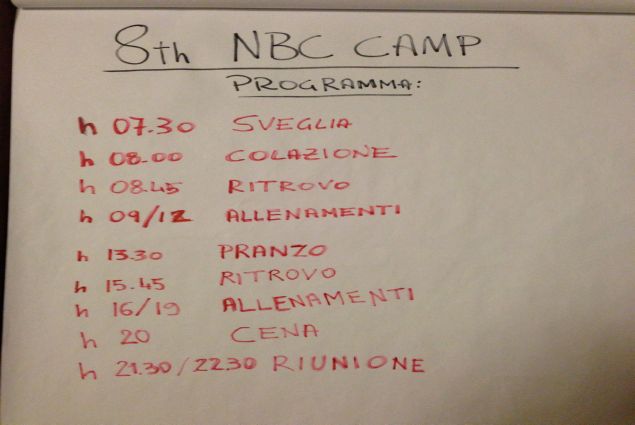 8th NBC CAMP
PROGRAMMA:
h 07.30 SVEGLIA
h 08.00 COLAZIONE
h 08.45 RITROVO
h 09/12 ALLENAMENTI
h 13.30 PRANZO
h 15.45 RITROVO
h 16/19 ALLENAMENTI
h 20 CENA
h 21.30/22.30 RIUNIONE